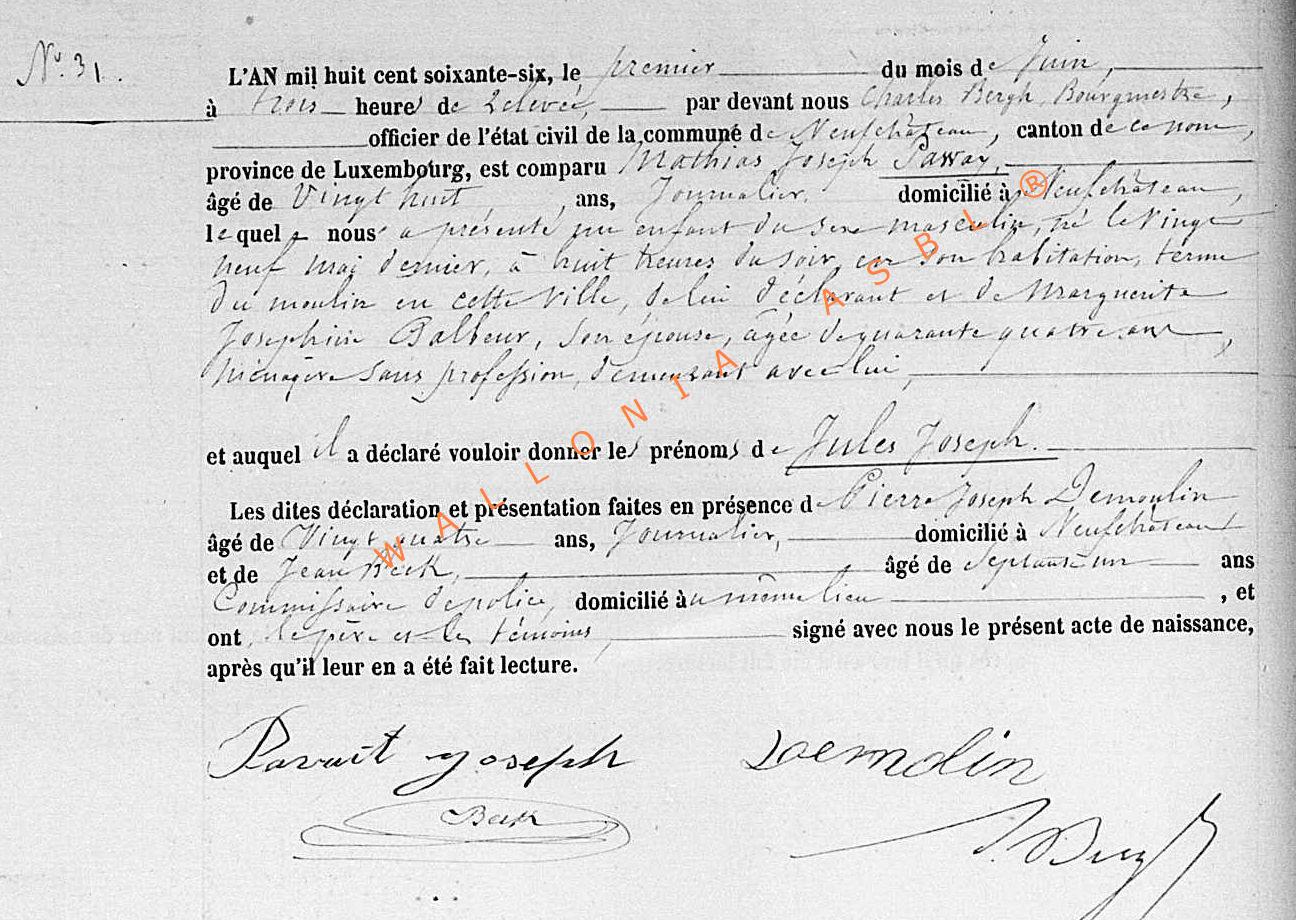 N.° 31.
L'AN mil huit cent soixante-six, le premier du mois de Juin,
à trois heures de relevée, par devant nous Charles Bergh, Bourgmestre,
officier de l'état civil de la commune de Neufchâteau, canton de ce nom,
province de Luxembourg, est comparu Mathias Joseph Paway,
âgé de Vingt huit ans, Journalier, domicilié à Neufchâteau,
lequel nous a présenté un enfant du sexe masculin, né le vingt
neuf mai dernier, à huit heures du soir, en son habitation, terme
du moulin en cette ville, de lui déclarant et de Marguerite
Josephine Balbeur, son épouse, agée de quarante quatre ans,
ménagère sans profession, demeurant avec lui,
et auquel il a déclaré vouloir donner les prénoms de Jules Joseph.
Les dites déclaration et présentation faites en présence de Pierre Joseph Demoulin
âgé de Vingt quatre ans, Journalier, domicilié à Neufchâteau
et de Jean Beck, âgé de septante un ans
Commissaire de police, domicilié au même lieu, et
ont, le père et les témoins, signé avec nous le présent acte de naissance,
après qu'il leur en a été fait lecture.
Pavait Joseph Demolin
Beck
WALLONIA ASBL ®